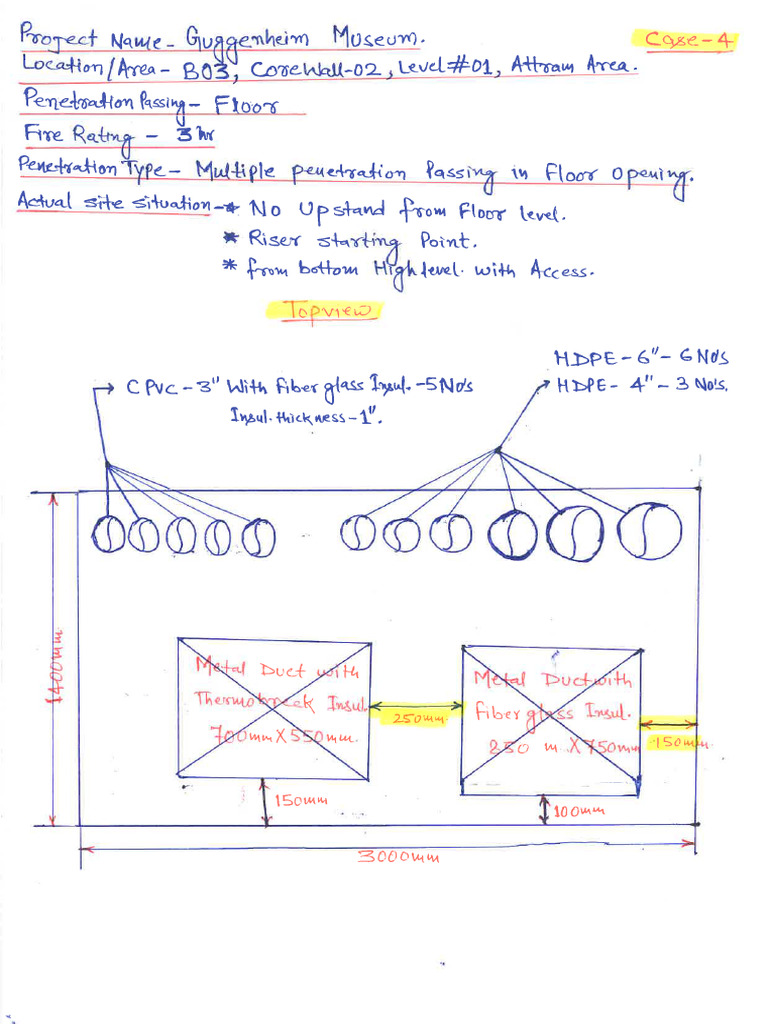 Project Name - Guggenheim Museum.
Case-4
Location/Area - B03, CoreWall-02, Level#01, Attram Area.
Penetration Passing - Floor
Fire Rating - 3 hr
Penetration Type - Multiple penetration Passing in Floor Opening.
Actual site situation - * No Upstand from Floor level.
* Riser starting Point.
* from bottom High level. with Access.
Topview
HDPE - 6" - 6 No's
CPVC - 3" With fiber glass Insul. - 5 No's
HDPE - 4" - 3 No's.
Insul. thickness - 1".
1400mm
Metal Duct with
Thermobreak Insul.
700mm X 550mm.
250mm
Metal Duct with
Fiber glass Insul.
250 m X 750mm
150mm
150mm
100mm
3000mm